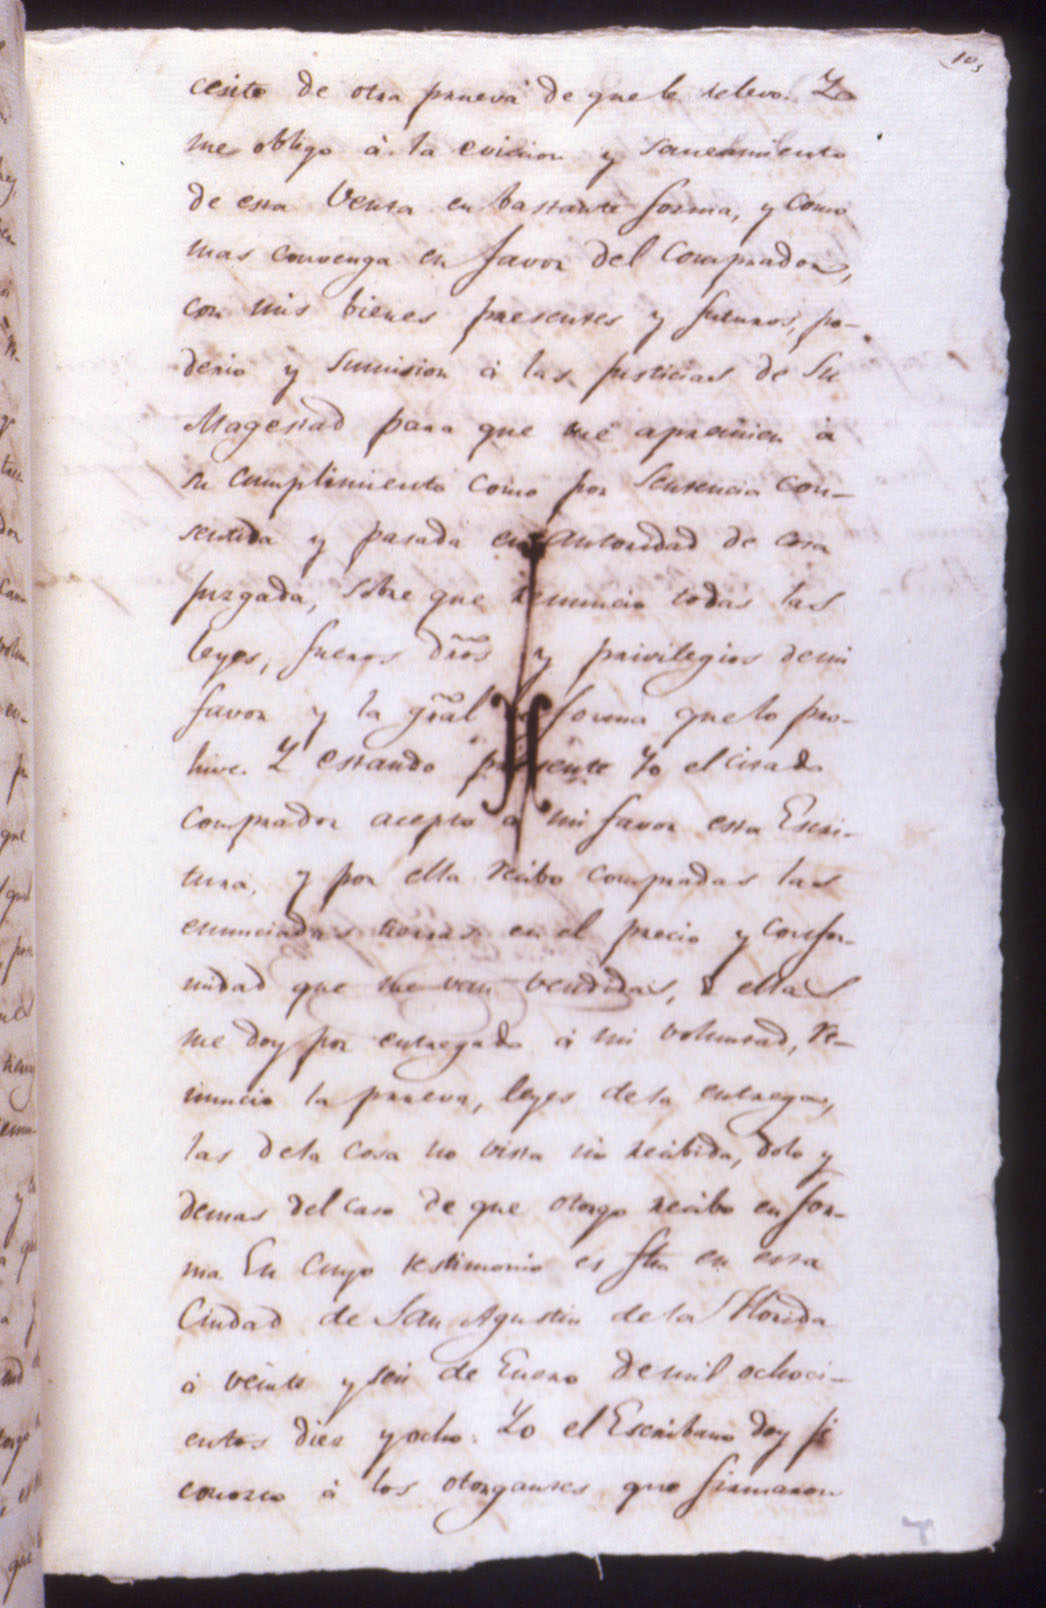 cesite de otra prueva de que le relevo. Y
me obligo à la eviccion y saneamiento
de esta Venta en bastante forma, y como
mas convenga en favor del Comprador,
con mis bienes presentes y futuros, po-
derio y sumision à las justicias de Su
Magestad para que me apremien à
su cumplimiento como por sentencia con-
sentida y pasada en autoridad de cosa
juzgada, sobre que renuncio todas las
leyes, fueros dr̃os y privilegios de mi
favor y la gr̃al en forma que lo pro-
hive. Y estando presente Yo el citado
Comprador acepto à mi favor esta Escri-
tura, y por ella recibo compradas las
enunciadas tierras en el precio y confor-
midad que me van vendidas, de ellas
me doy por entregado à mi voluntad, re-
nuncio la prueva, leyes de la entrega,
las dela cosa no vista ni recibida, dolo y
demas del caso de que otorgo recibo en for-
ma. En cuyo testimonio es fha en esta
Ciudad de San Agustin de la Florida
à veinte y seis de Enero de mil ochoci-
entos diez y ocho. Yo el Escribano doy fé
conozco à los otorgantes que firmaron